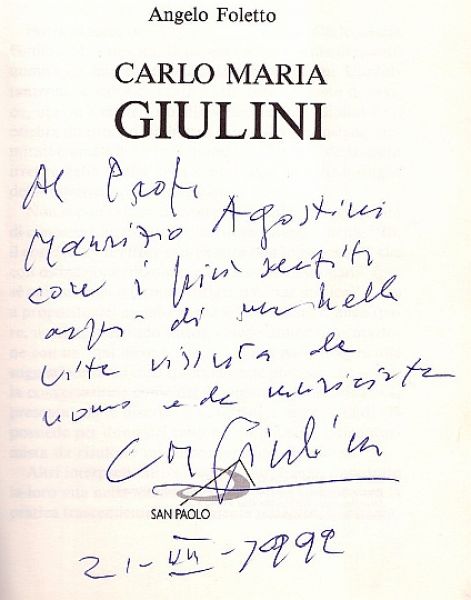 Angelo Foletto
CARLO MARIA
GIULINI
Al Prof.
Maurizio Agostini
con i più sentiti
auguri di una bella
vita vissuta da
uomo e da musicista
CM Giulini
SAN PAOLO
21-VII-1992